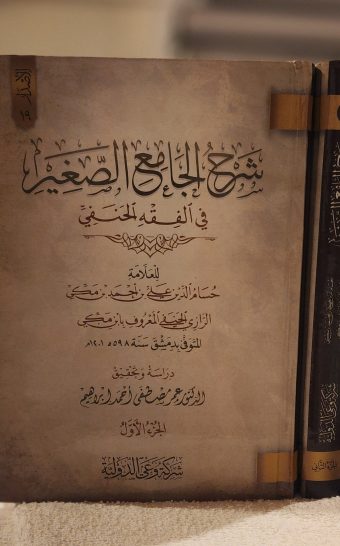 الإصدار ١٩
شرح الجامع الصغير
في الفقه الحنفي
للعلامة
حسام الدين علي بن أحمد بن مكي
الرازي الحنفي المعروف بابن مكي
المتوفى بدمشق سنة ٥٩٨ه ١٢٠١م
دراسة وتحقيق
الدكتور عمر مصطفى أحمد إبراهيم
الجزء الأول
شركة وعي الدولية
الجزء الثاني
شركة وعي الدولية